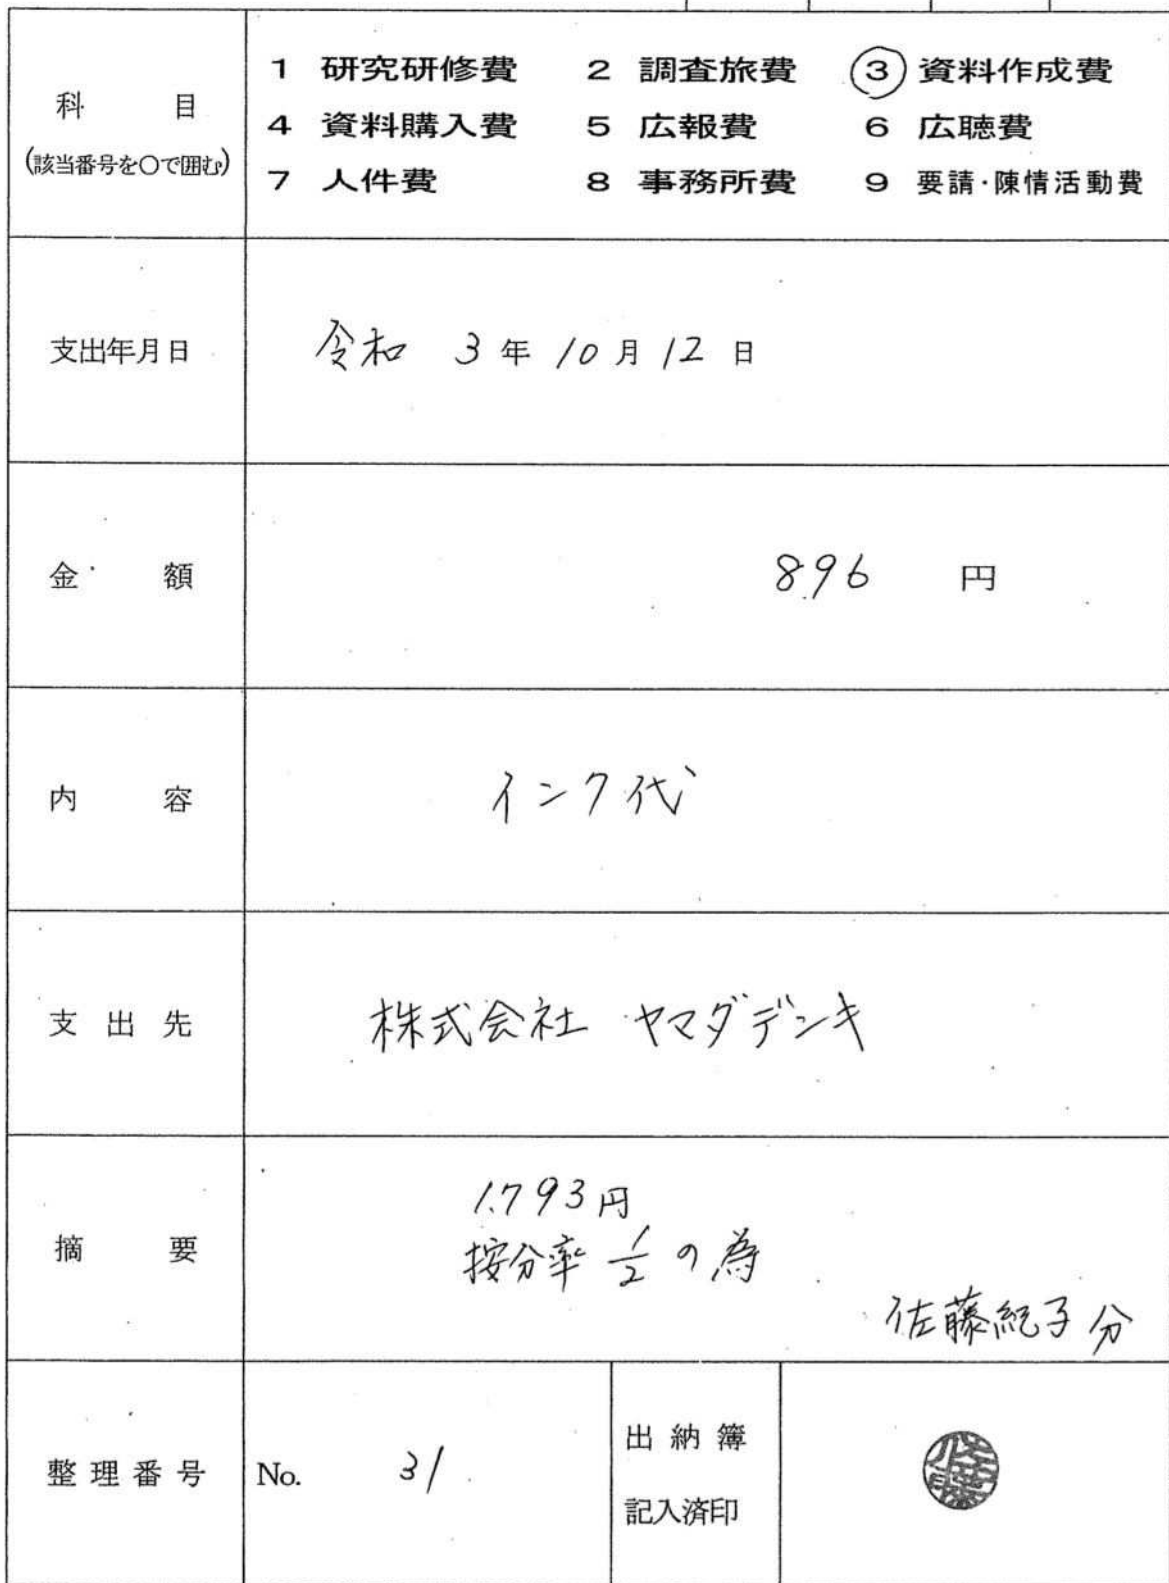 科 目
(該当番号を○で囲む)
1 研究研修費 2 調査旅費 ③ 資料作成費
4 資料購入費 5 広報費 6 広聴費
7 人件費 8 事務所費 9 要請・陳情活動費
支出年月日
令和 3年 10月 12日
金 額
896 円
内 容
インク代
支出先
株式会社 ヤマダデンキ
摘 要
1,793円
按分率 1/2 の為
佐藤紀子分
整理番号
No. 31
出納簿
記入済印
佐藤